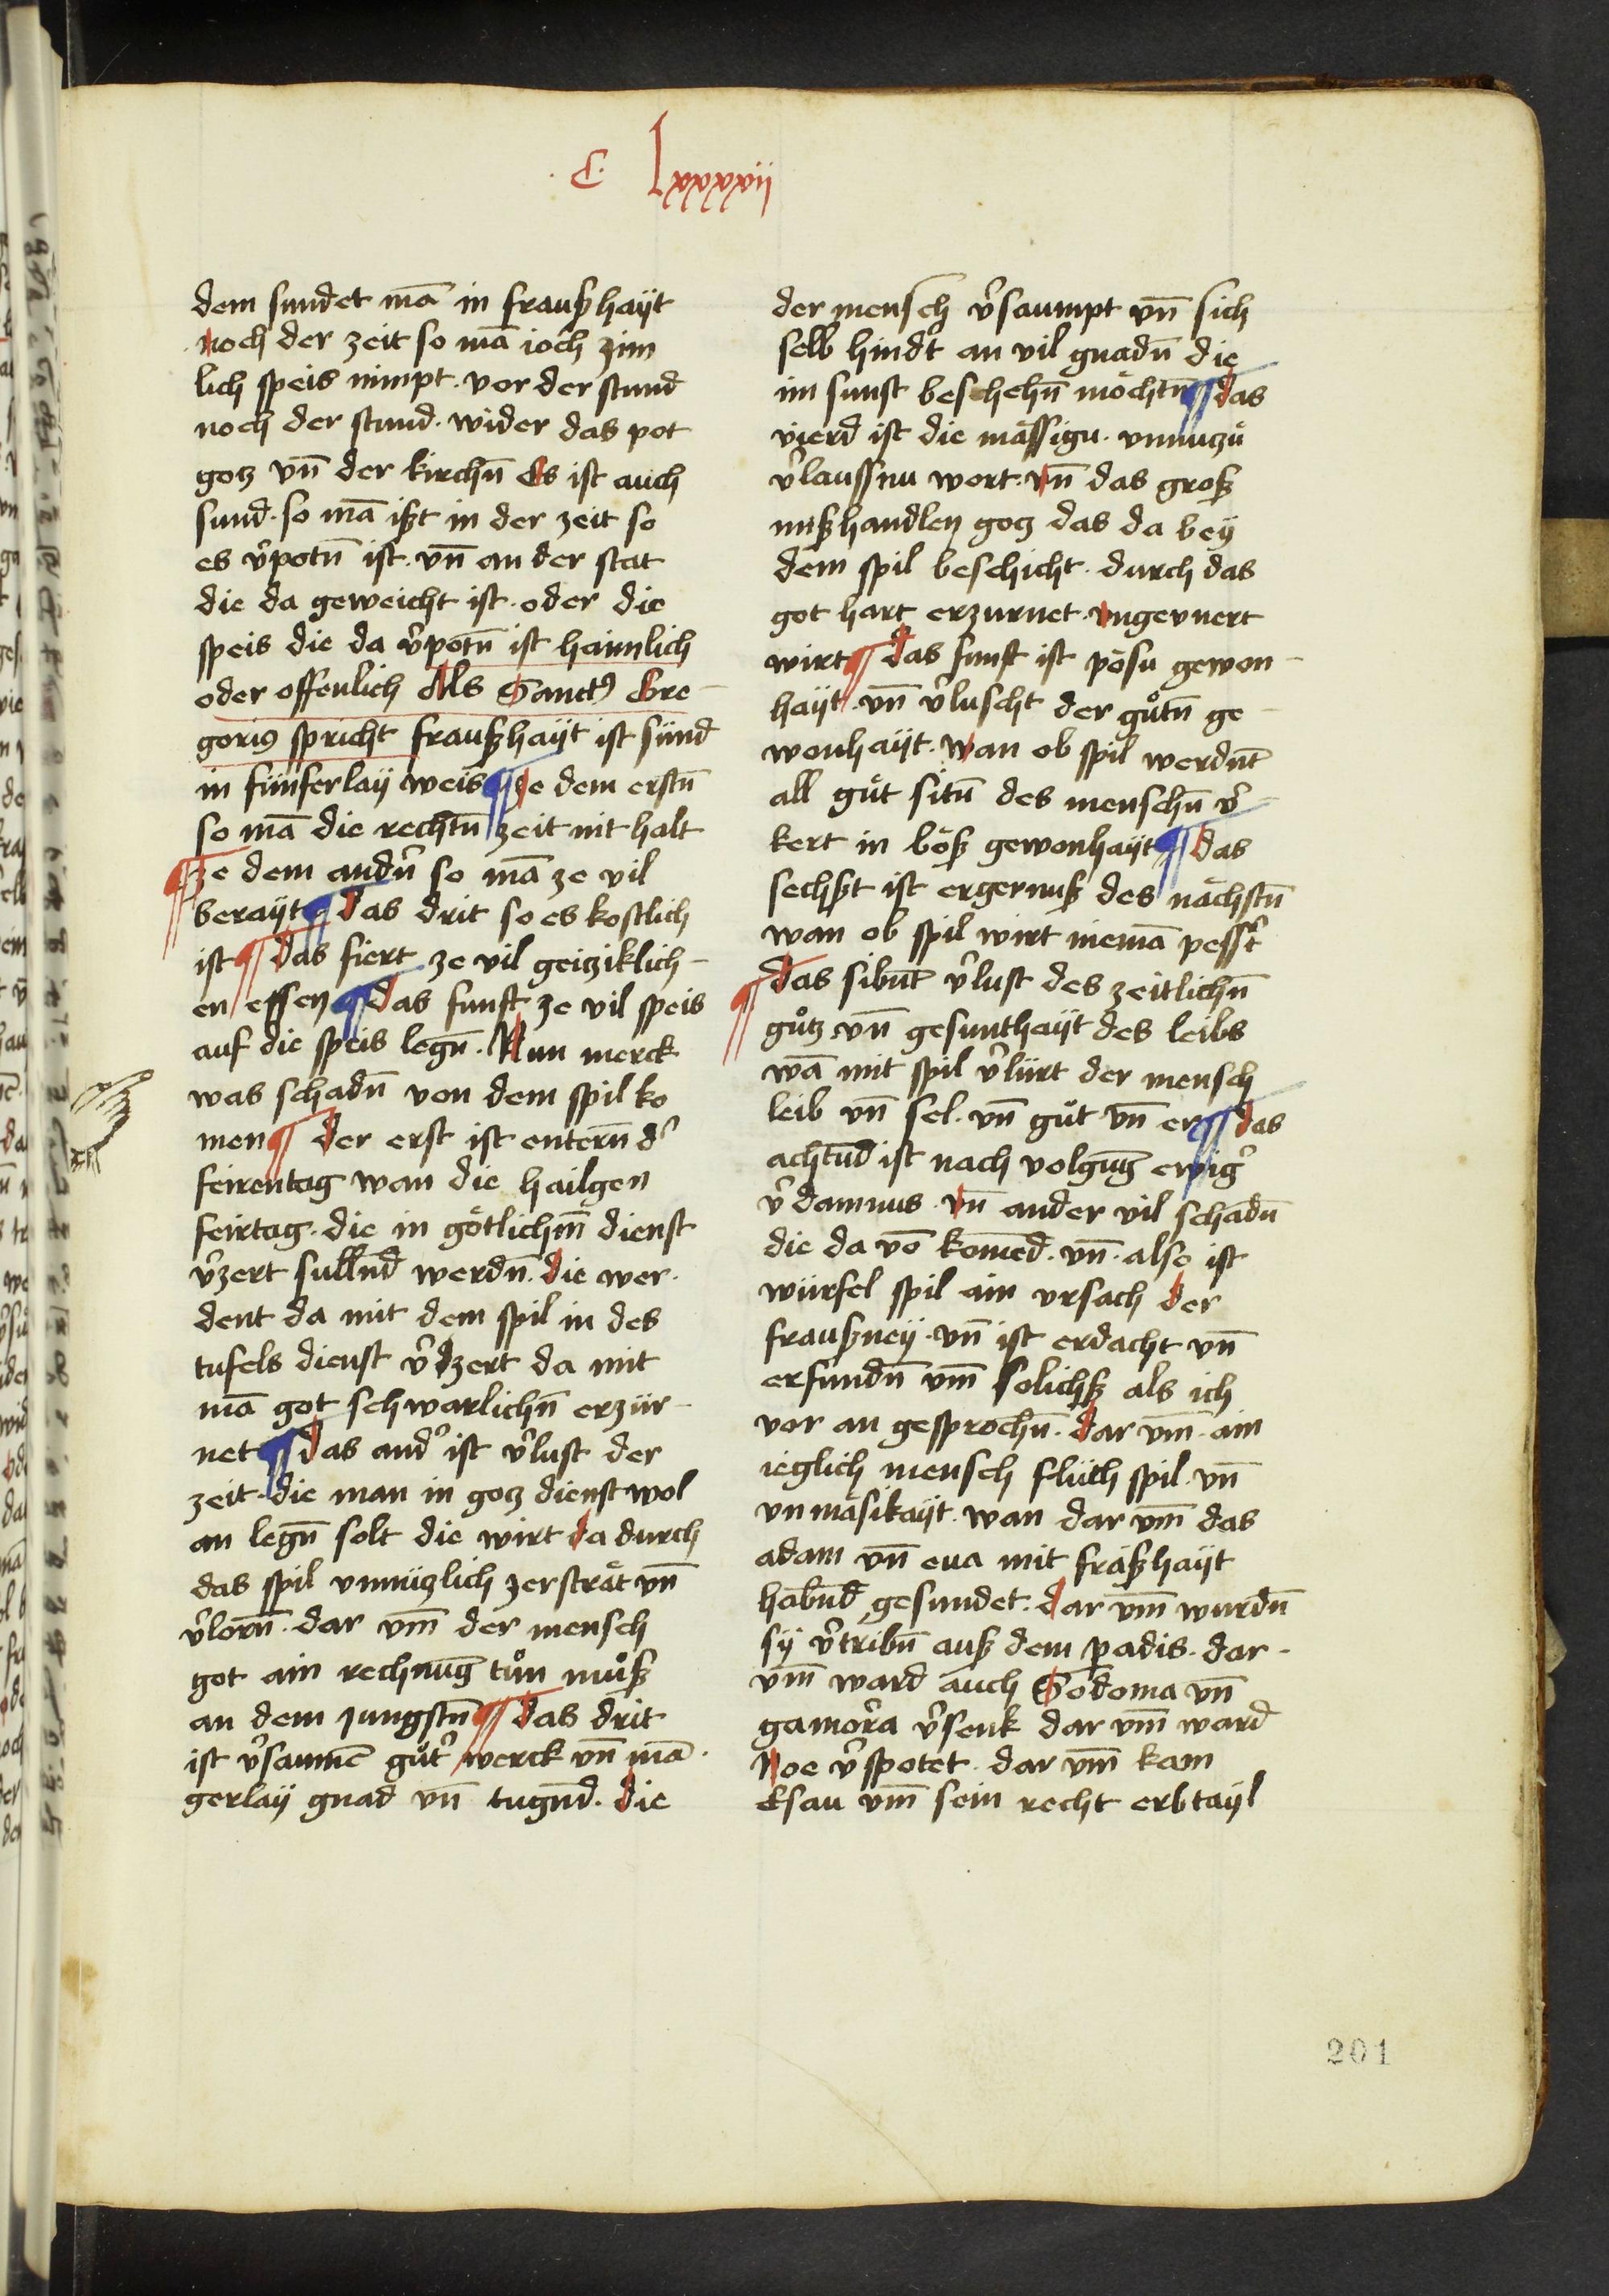 .C. lxxxxvii
dem sundet mā in fraußhayt
noch der zeit so mā ioch zim
lich speis nimpt. vor der stund
noch der stund. wider das pot
gotz vn̄ der kirchn̄ Es ist auch
sund. so mā ißt in der zeit so
es v̾potn̄ ist. vn̄ an der stat
die da geweicht ist. oder die
speis die da v̾potn̄ ist haimlich
oder offenlich Als Sanctꝰ Gre-
goriꝰ spricht fraußhayt ist sünd
in fünferlaÿ weis ¶ ze dem erstn̄
so mā die rechtn̄ zeit nit halt
¶ ze dem andn̾ so mā ze vil
berayt ¶ Das drit so es kostlich
ist ¶ Das fiert ze vil geitziklich-
en essen ¶ das funft ze vil speis
auf die speis legn̄. Nun merck
was schadn̄ von dem spil ko
men ¶ Der erst ist entern̄ d̾
feirentag wan die hailgen
feirtag. die in götlichm̄ dienst
v̾zert sullnd̄ werdn̄. die wer.
dent da mit dem spil in des
tufels dienst v̾dzert da mit
mā got schwarlichn̄ erzür-
net ¶ das and̾ ist v̾lust der
zeit. die man in gotz dienst wol
an legn̄ solt die wirt da durch
das spil vnnützlich zersträt vn̄
v̾lorn̄. dar vm̄ der mensch
got ain rechnūg tůn můß
an dem jungstn̄ ¶ das drit
ist v̾saumē gůt̾ werck vn̄ mā.
gerlaÿ gnad vn̄ tugnd̄. die
der mensch v̾saumpt vn̄ sich
selb hindt̾ an vil gnadn̄ die
im sunst beschehn̄ möchtn̄ ¶ das
vierd ist die mässigu. vnnutzů
v̾laussnu wort. vn̄ das groß
mißhandlen gotz das da beÿ
dem spil beschicht. durch das
got hart erzurnet. vngeunert
wirt ¶ das funft ist pösu gewon-
haÿt. vn̄ v̾luscht der gůtn̄ ge
wonhaÿt. wan ob spil werdnt̄
all gůt sitn̄ des menschn̄ v̾-
kert in böß gewonhaÿt ¶ das
sechßt ist ergernuß des nächstn̄
wan ob spil wirt niemā pesst̾
¶ das sibnt̄ v̾lust des zeitlichn̄
gůtz vn̄ gesunthaÿt des leibs
wā mit spil v̾lürt der mensch
leib vn̄ sel. vn̄ gůt vn̄ er ¶ das
achtnd̄ ist nach volgūg ewig̾
v̾damnus. vn̄ ander vil schadn̄
die da vō komēd. vn̄. also ist
würfel spil ain vrsach der
fraußneÿ. vn̄ ist erdacht vn̄
erfundn̄ vm̄ solichß als ich
vor an gesprochn̄. dar vm̄. ain
ieglich mensch flüch spil. vn̄
vnmäsikaÿt. wan dar vm̄ das
adam vn̄ eua mit fräßhaÿt
habnd̄ gesundet. dar vm̄ wurdn̄
sÿ v̾tribn̄ auß dem padis. dar-
vm̄ ward auch Sodoma vn̄
gamor̾a v̾senk dar vm̄ ward
Noe v̾spotet. dar vm̄ kam
Esau vm̄ sein recht erbtaÿl
201